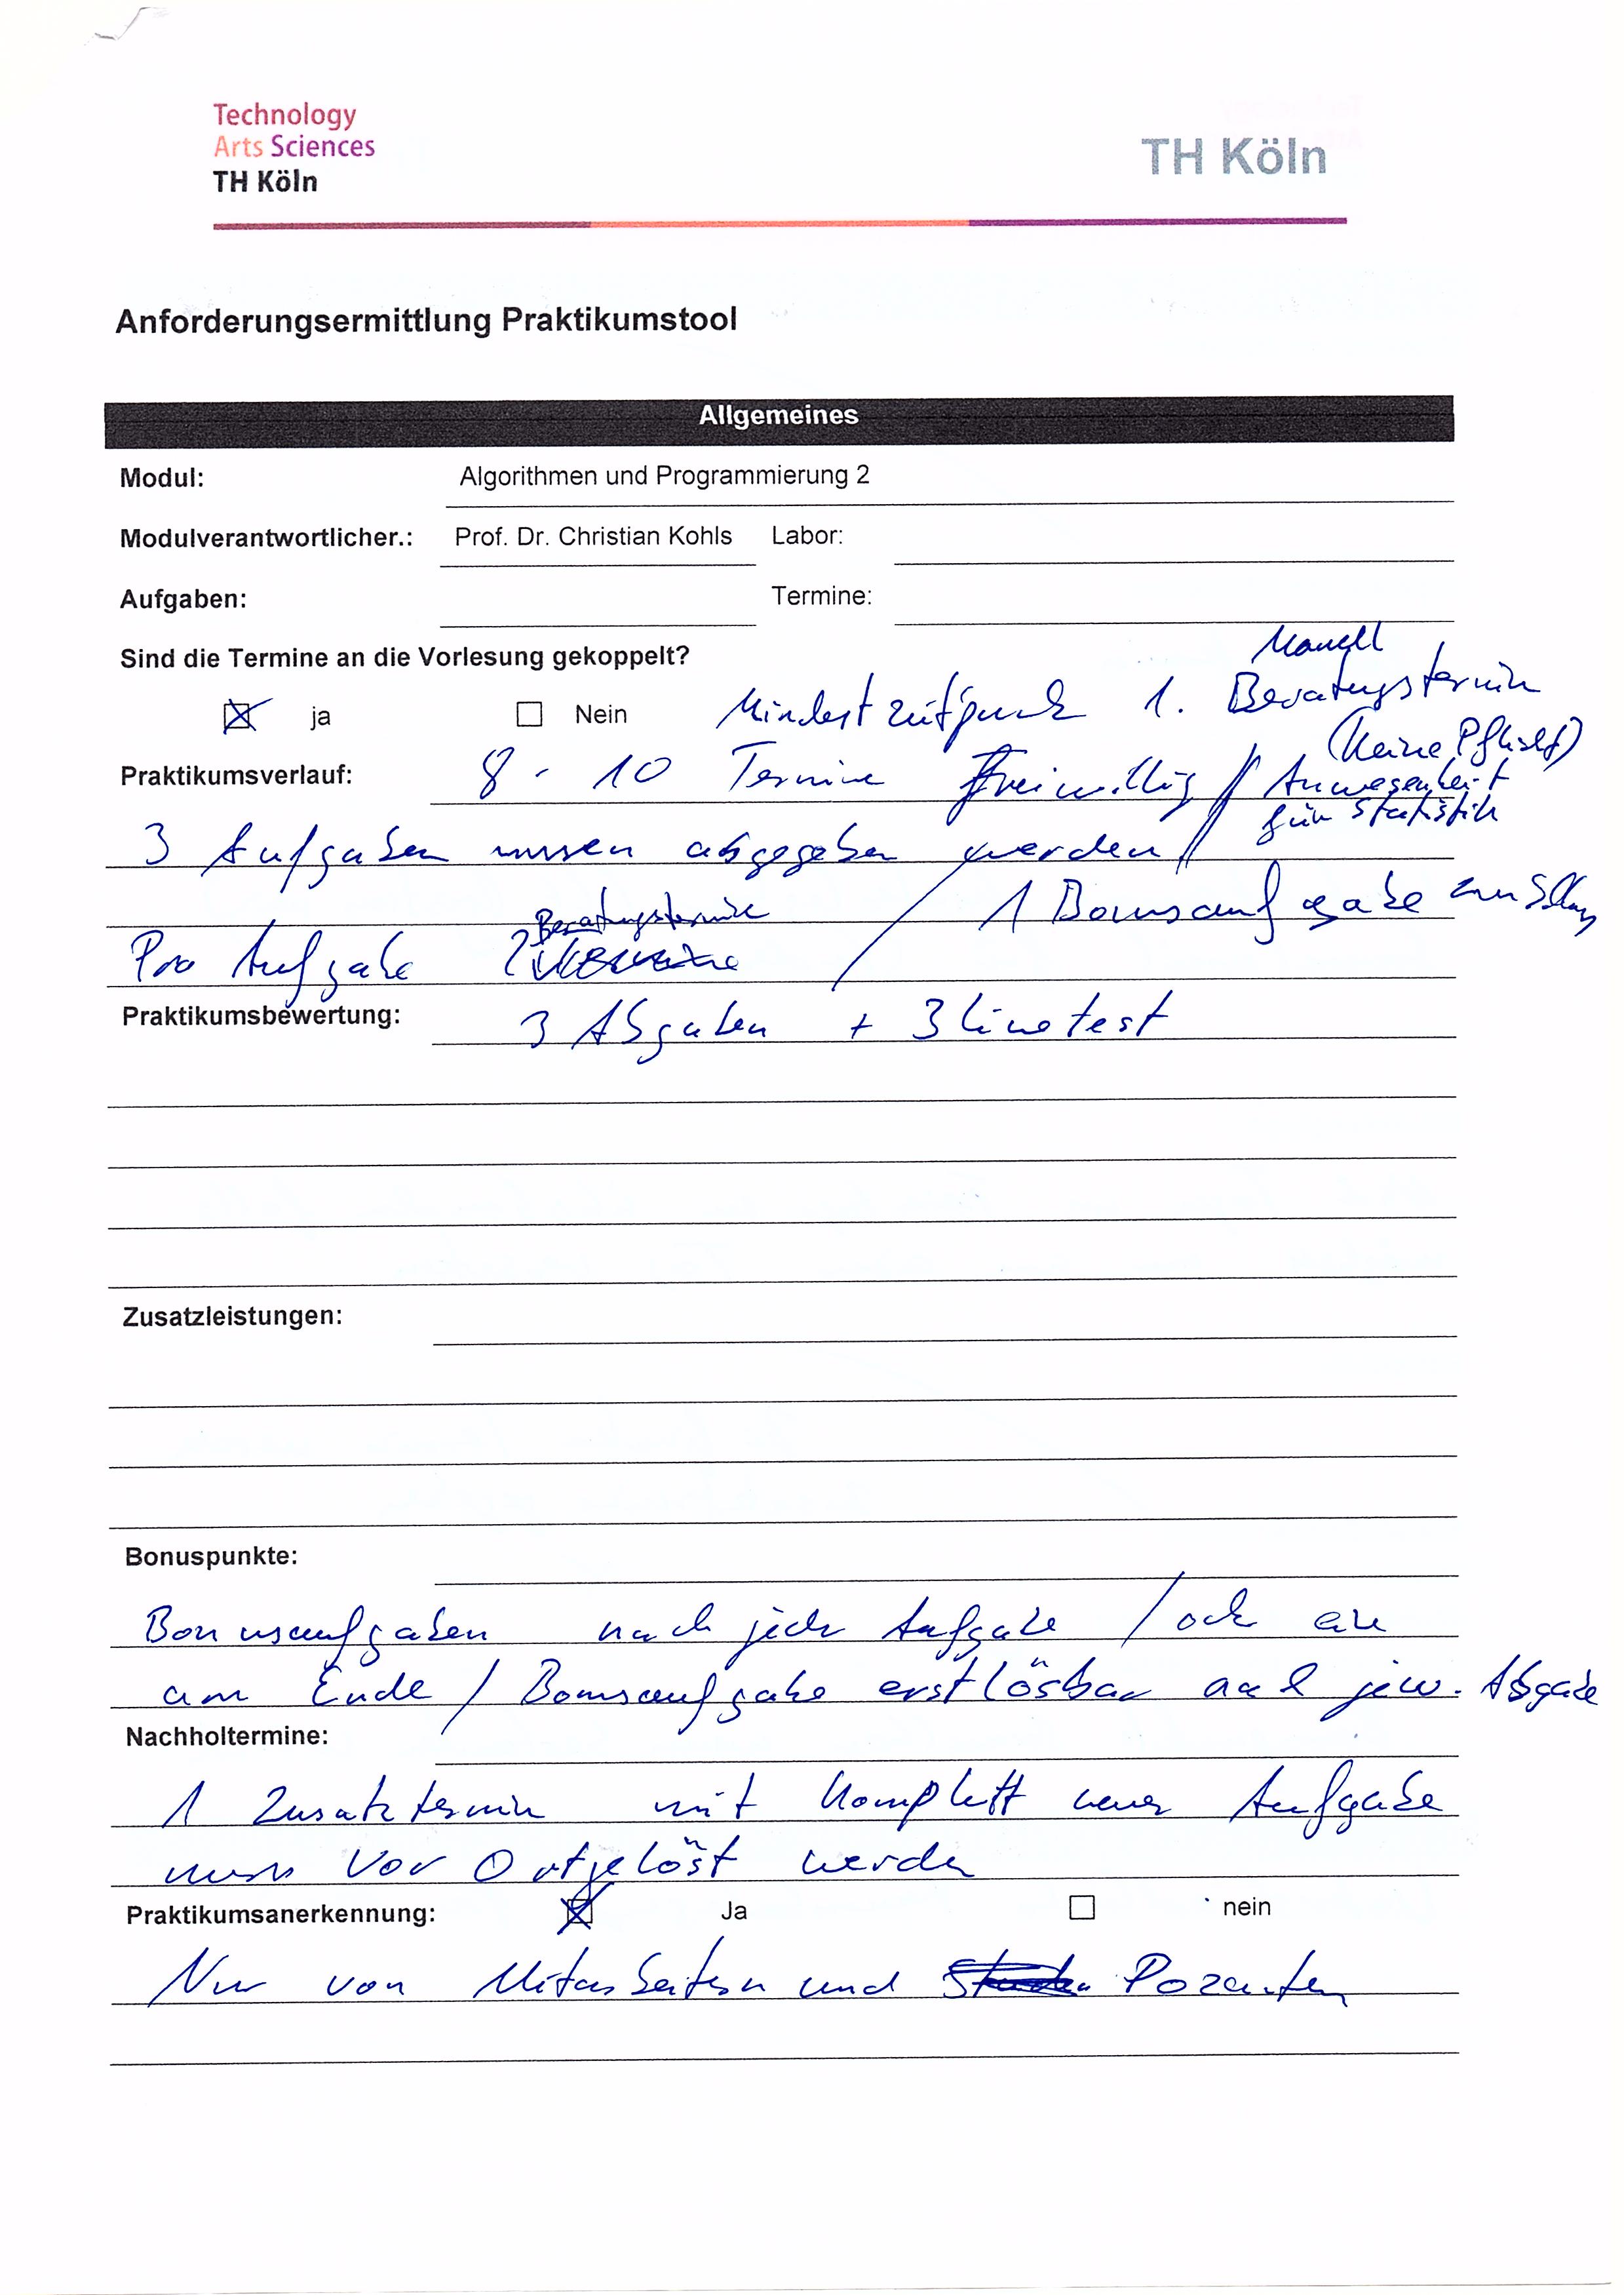 Technology
Arts Sciences
TH Köln
TH Köln
Anforderungsermittlung Praktikumstool
Allgemeines
Modul: Algorithmen und Programmierung 2
Modulverantwortlicher.: Prof. Dr. Christian Kohls Labor:
Aufgaben: Termine:
Sind die Termine an die Vorlesung gekoppelt?
ja Nein Mindestzeitpunk 1. Beratungstermin
(Keine Pflicht)
Praktikumsverlauf: 8 - 10 Termine Freiwillig // Anwesenheit
für Statistik
3 Aufgaben müssen abgegeben werden //
Beratungstermine / 1 Bonusaufgabe
Pro Aufgabe 2
Praktikumsbewertung: 3 Abgaben + 3 Livetest
Zusatzleistungen:
Bonuspunkte:
Bonusaufgaben nach jeder Aufgabe / oder eine
am Ende / Bonusaufgabe erst lösbar nach jew. Abgabe
Nachholtermine:
1 Zusatztermin mit Komplett neuer Aufgabe
muss Vor Ort gelöst werden
Praktikumsanerkennung: Ja nein
Nur von Mitarbeitern und Dozenten